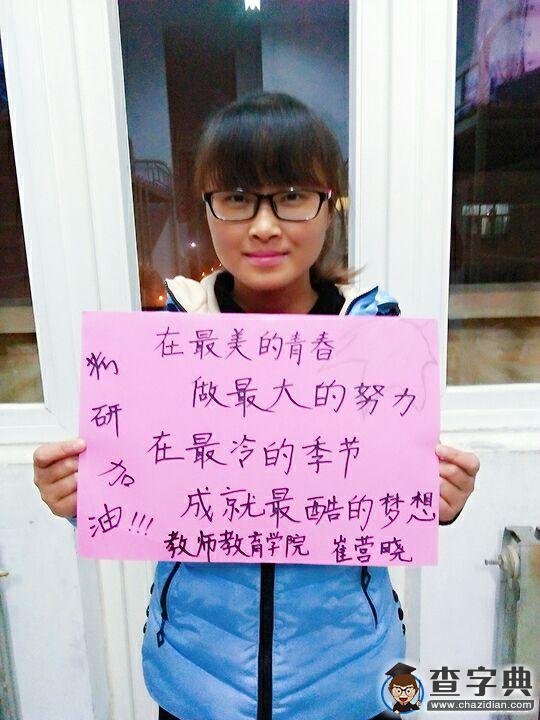 在最美的青春
做最大的努力
在最冷的季节
成就最酷的梦想
教师教育学院 崔营晓
考研加油!!!
查字典
www.chazidian.com